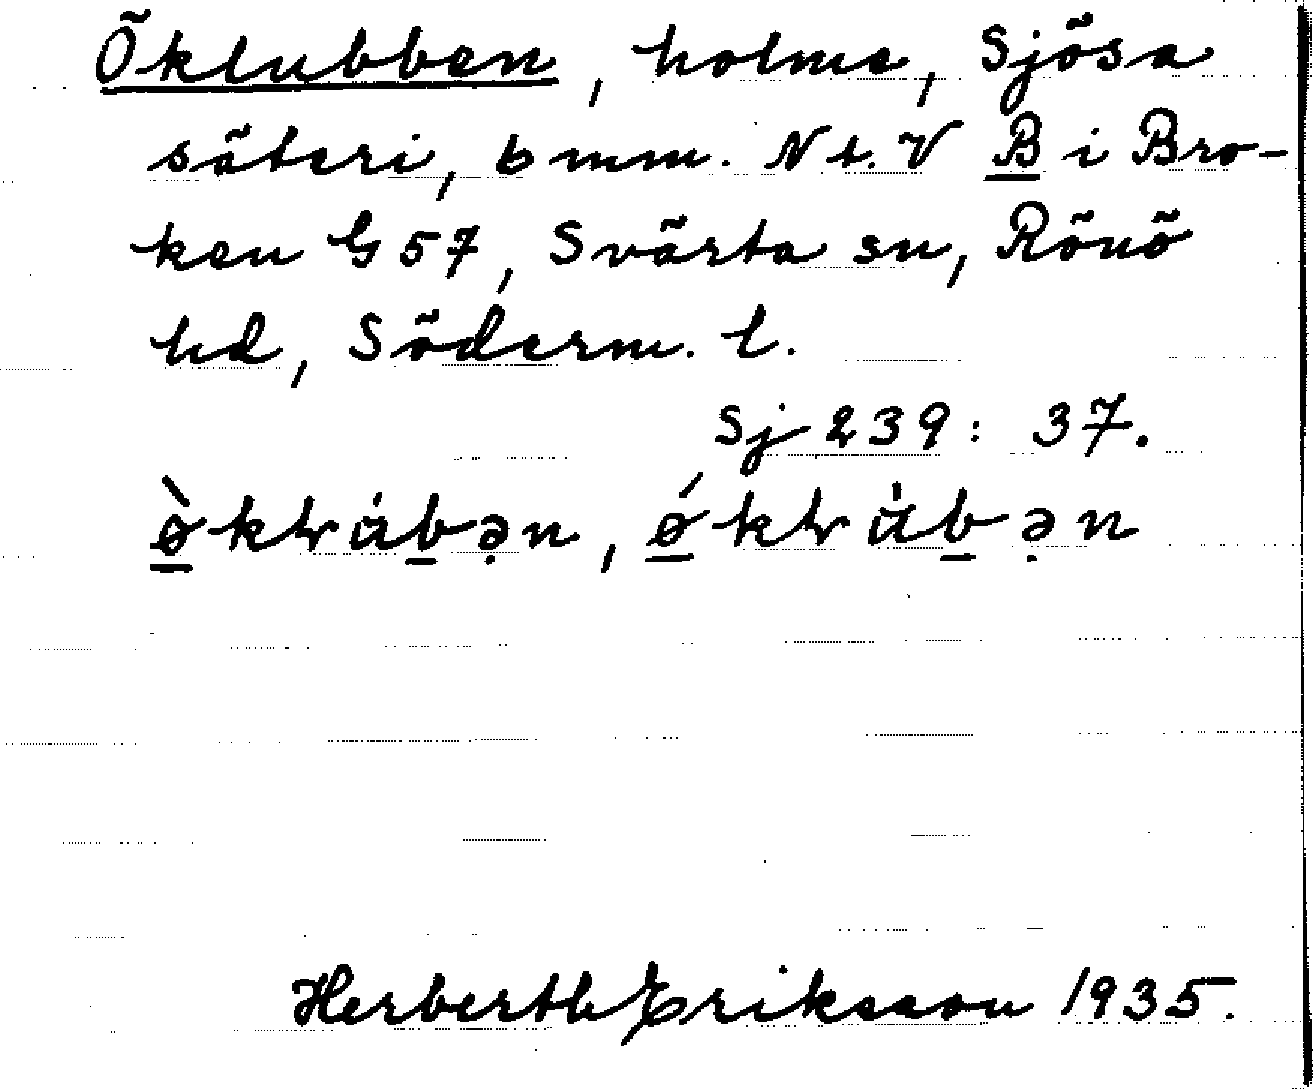 Öklubben, holme, Sjösa
säteri, 6 mm. N t. V B i Bro-
ken G 57, Svärta sn, Rönö
hd, Söderm. l.
Sj 239: 37.
Herbert Eriksson 1935.